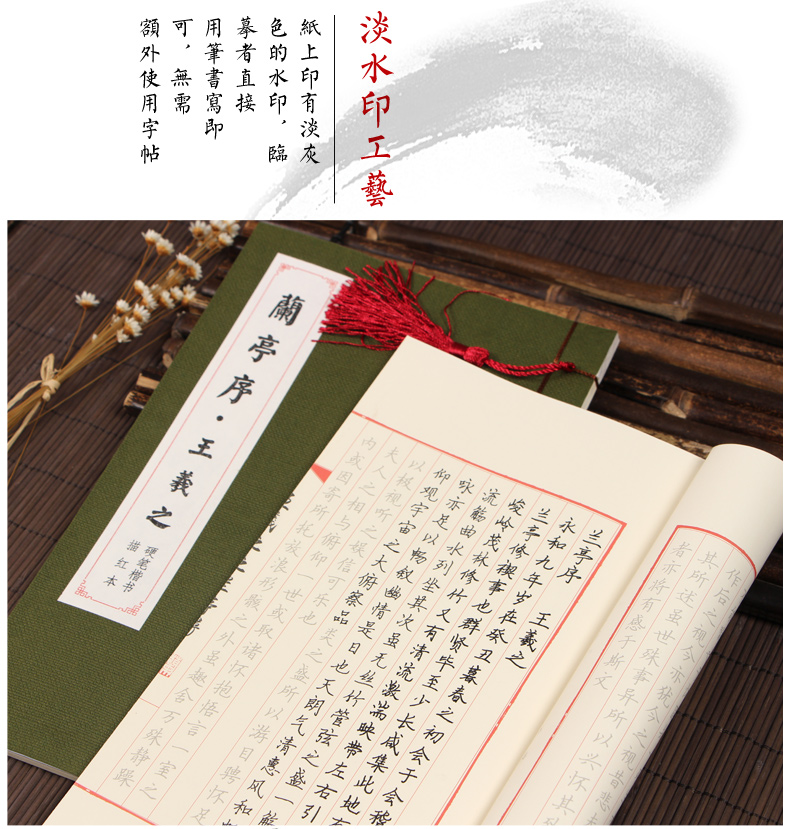 淡水印工藝
紙上印有淡灰
色的水印，臨
摹者直接
用筆書寫即
可，無需
額外使用字帖
蘭亭序·王羲之
硬笔楷书
描红本
作后之视今亦犹今之视昔悲
其所述虽世殊事异所以兴怀其
者亦将有感于斯文
兰亭序 王羲之
永和九年岁在癸丑暮春之初会于会稽
兰亭修禊事也群贤毕至少长咸集此地
峻岭茂林修竹又有清流激湍映带左右引
流觞曲水列坐其次虽无丝竹管弦之盛一觞
咏亦足以畅叙幽情是日也天朗气清惠风和
仰观宇宙之大俯察品类之盛所以游目骋怀足
以极视听之娱信可乐也
夫人之相与俯仰一世或取诸怀抱悟言一室之
内或因寄所托放浪形骸之外虽趣舍万殊静躁